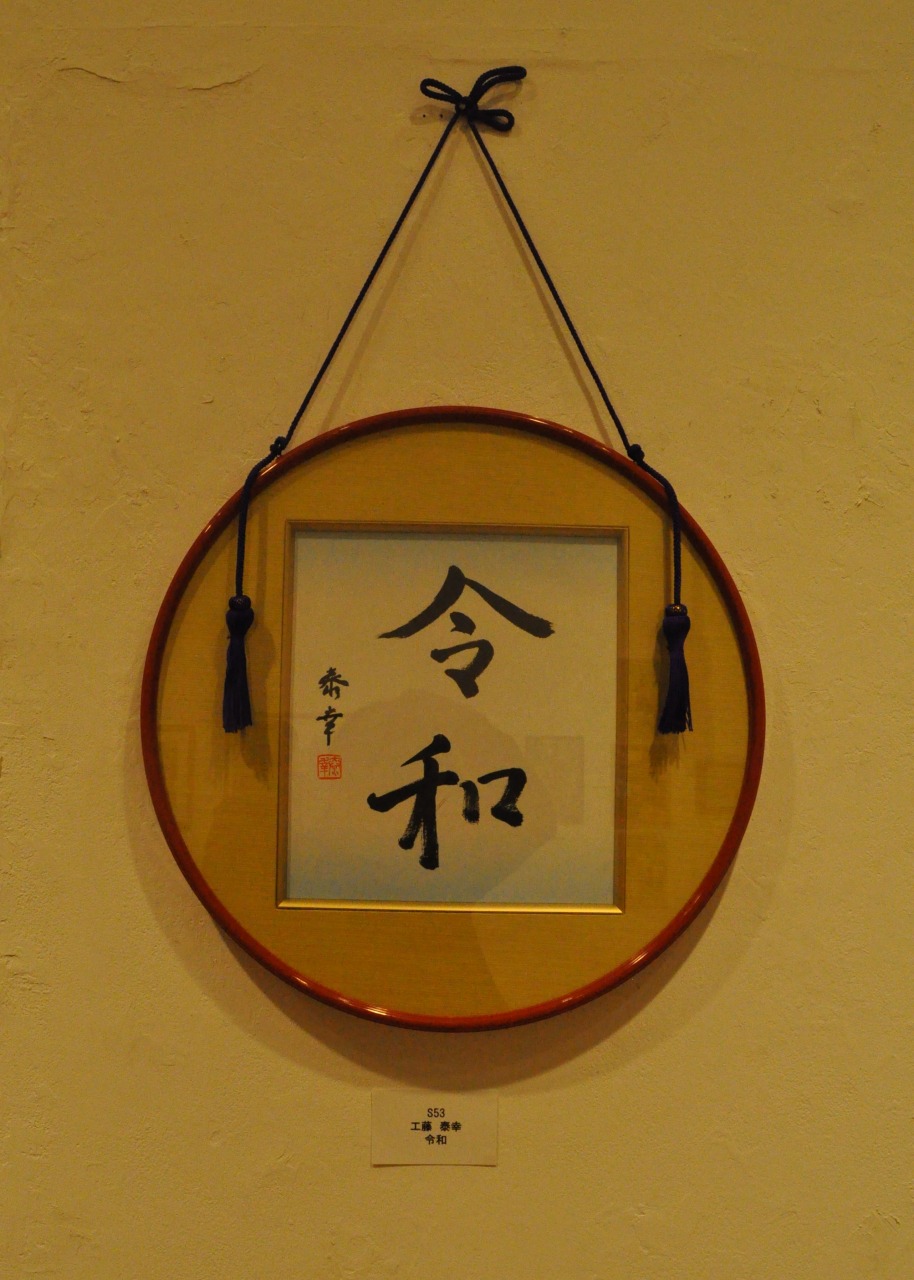 令和
泰幸
S53
工藤 泰幸
令和